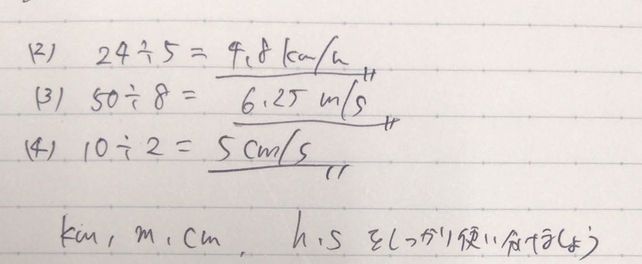 (2) 24÷5 = 4.8 km/h
(3) 50÷8 = 6.25 m/s
(4) 10÷2 = 5 cm/s
km, m, cm, h, s をしっかり使い分けましょう